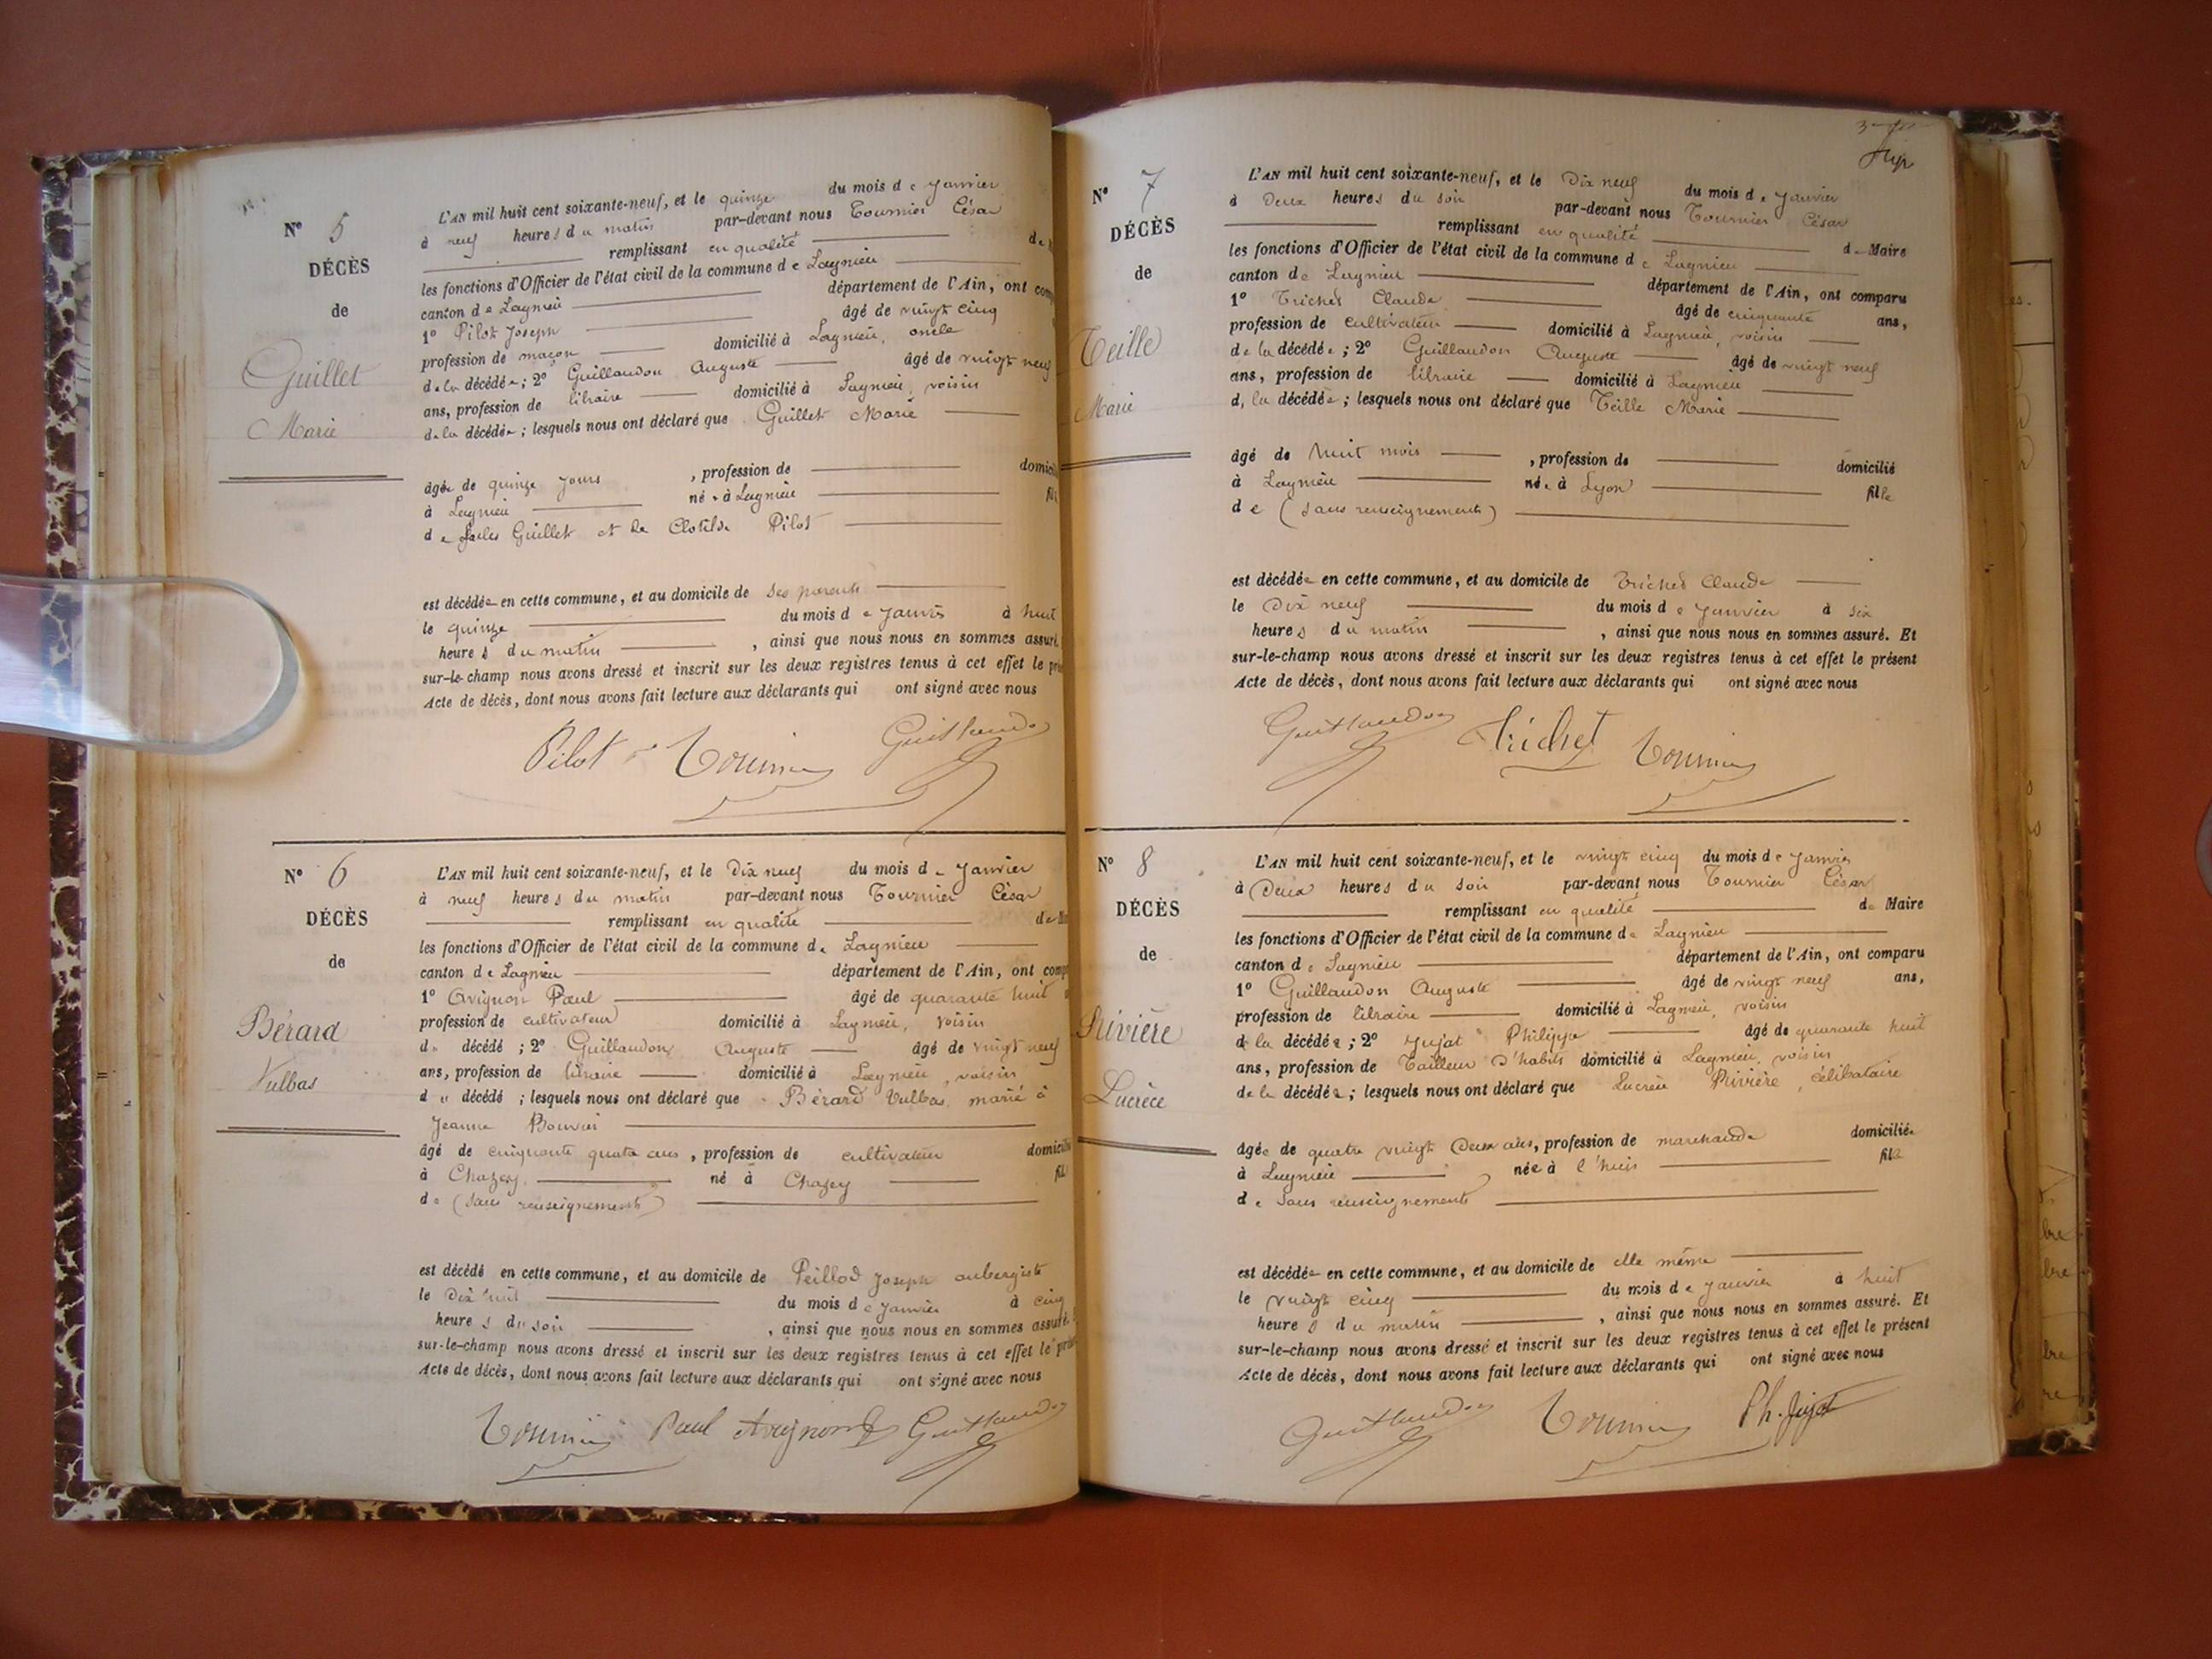 N° 5
DÉCÈS
de
Guillet
Marie
L'AN mil huit cent soixante-neuf, et le quinze du mois de Janvier
à neuf heures du matin par-devant nous Tournier César
remplissant en qualité de
les fonctions d'Officier de l'état civil de la commune de Lagnieu
canton de Lagnieu département de l'Ain, ont
1° Pilot Joseph âgé de vingt cinq
profession de maçon domicilié à Lagnieu, oncle
de la décédée ; 2° Guillaudon Auguste âgé de vingt neuf
ans, profession de libraire domicilié à Lagnieu, voisin
de la décédée ; lesquels nous ont déclaré que Guillet Marie
âgée de quinze jours , profession de
à Lagnieu née à Lagnieu
de Jules Guillet et de Clotilde Pilot
est décédée en cette commune, et au domicile de ses parents
le quinze du mois de Janvier à huit
heures du matin , ainsi que nous nous en sommes assuré.
sur-le-champ nous avons dressé et inscrit sur les deux registres tenus à cet effet le
Acte de décès, dont nous avons fait lecture aux déclarants qui ont signé avec nous
Pilot Tournier Guillaudon
N° 6
DÉCÈS
de
Bérard
Vulbas
L'AN mil huit cent soixante-neuf, et le Dix neuf du mois de Janvier
à neuf heures du matin par-devant nous Tournier César
remplissant en qualité de
les fonctions d'Officier de l'état civil de la commune de Lagnieu
canton de Lagnieu département de l'Ain, ont
1° Avignon Paul âgé de quarante huit
profession de cultivateur domicilié à Lagnieu, voisin
du décédé ; 2° Guillaudon Auguste âgé de vingt neuf
ans, profession de libraire domicilié à Lagnieu, voisin
du décédé ; lesquels nous ont déclaré que Bérard Vulbas, marié à
Jeanne Bouvier
âgé de cinquante quatre ans , profession de cultivateur
à Chazey, né à Chazey
de (sans renseignements)
est décédé en cette commune, et au domicile de Peillod Joseph aubergiste
le Dix huit du mois de Janvier à cinq
heures du soir , ainsi que nous nous en sommes assuré.
sur-le-champ nous avons dressé et inscrit sur les deux registres tenus à cet effet le
Acte de décès, dont nous avons fait lecture aux déclarants qui ont signé avec nous
Tournier Paul Avignon Guillaudon
N° 7
DÉCÈS
de
Teille
Marie
L'AN mil huit cent soixante-neuf, et le Dix neuf du mois de Janvier
à Deux heures du soir par-devant nous Tournier César
remplissant en qualité de Maire
les fonctions d'Officier de l'état civil de la commune de Lagnieu
canton de Lagnieu département de l'Ain, ont comparu
1° Trichet Claude âgé de cinquante ans,
profession de cultivateur domicilié à Lagnieu, voisin
de la décédée ; 2° Guillaudon Auguste âgé de vingt neuf
ans, profession de libraire domicilié à Lagnieu
de la décédée ; lesquels nous ont déclaré que Teille Marie
âgé de huit mois , profession de domicilié
à Lagnieu née à Lyon fille
de (sans renseignements)
est décédée en cette commune, et au domicile de Trichet Claude
le Dix neuf du mois de Janvier à six
heures du matin , ainsi que nous nous en sommes assuré. Et
sur-le-champ nous avons dressé et inscrit sur les deux registres tenus à cet effet le présent
Acte de décès, dont nous avons fait lecture aux déclarants qui ont signé avec nous
Guillaudon Trichet Tournier
N° 8
DÉCÈS
de
Rivière
Lucrèce
L'AN mil huit cent soixante-neuf, et le vingt cinq du mois de Janvier
à Deux heures du soir par-devant nous Tournier César
remplissant en qualité de Maire
les fonctions d'Officier de l'état civil de la commune de Lagnieu
canton de Lagnieu département de l'Ain, ont comparu
1° Guillaudon Auguste âgé de vingt neuf ans,
profession de libraire domicilié à Lagnieu, voisin
de la décédée ; 2° Jujat Philippe âgé de quarante huit
ans, profession de Tailleur d'habits domicilié à Lagnieu, voisin
de la décédée ; lesquels nous ont déclaré que Lucrèce Rivière, célibataire
âgée de quatre vingt Deux ans, profession de marchande domiciliée
à Lagnieu née à l'huis fille
de Sans renseignements
est décédée en cette commune, et au domicile de elle même
le vingt cinq du mois de Janvier à huit
heures du matin , ainsi que nous nous en sommes assuré. Et
sur-le-champ nous avons dressé et inscrit sur les deux registres tenus à cet effet le présent
Acte de décès, dont nous avons fait lecture aux déclarants qui ont signé avec nous
Guillaudon Tournier Ph. Jujat